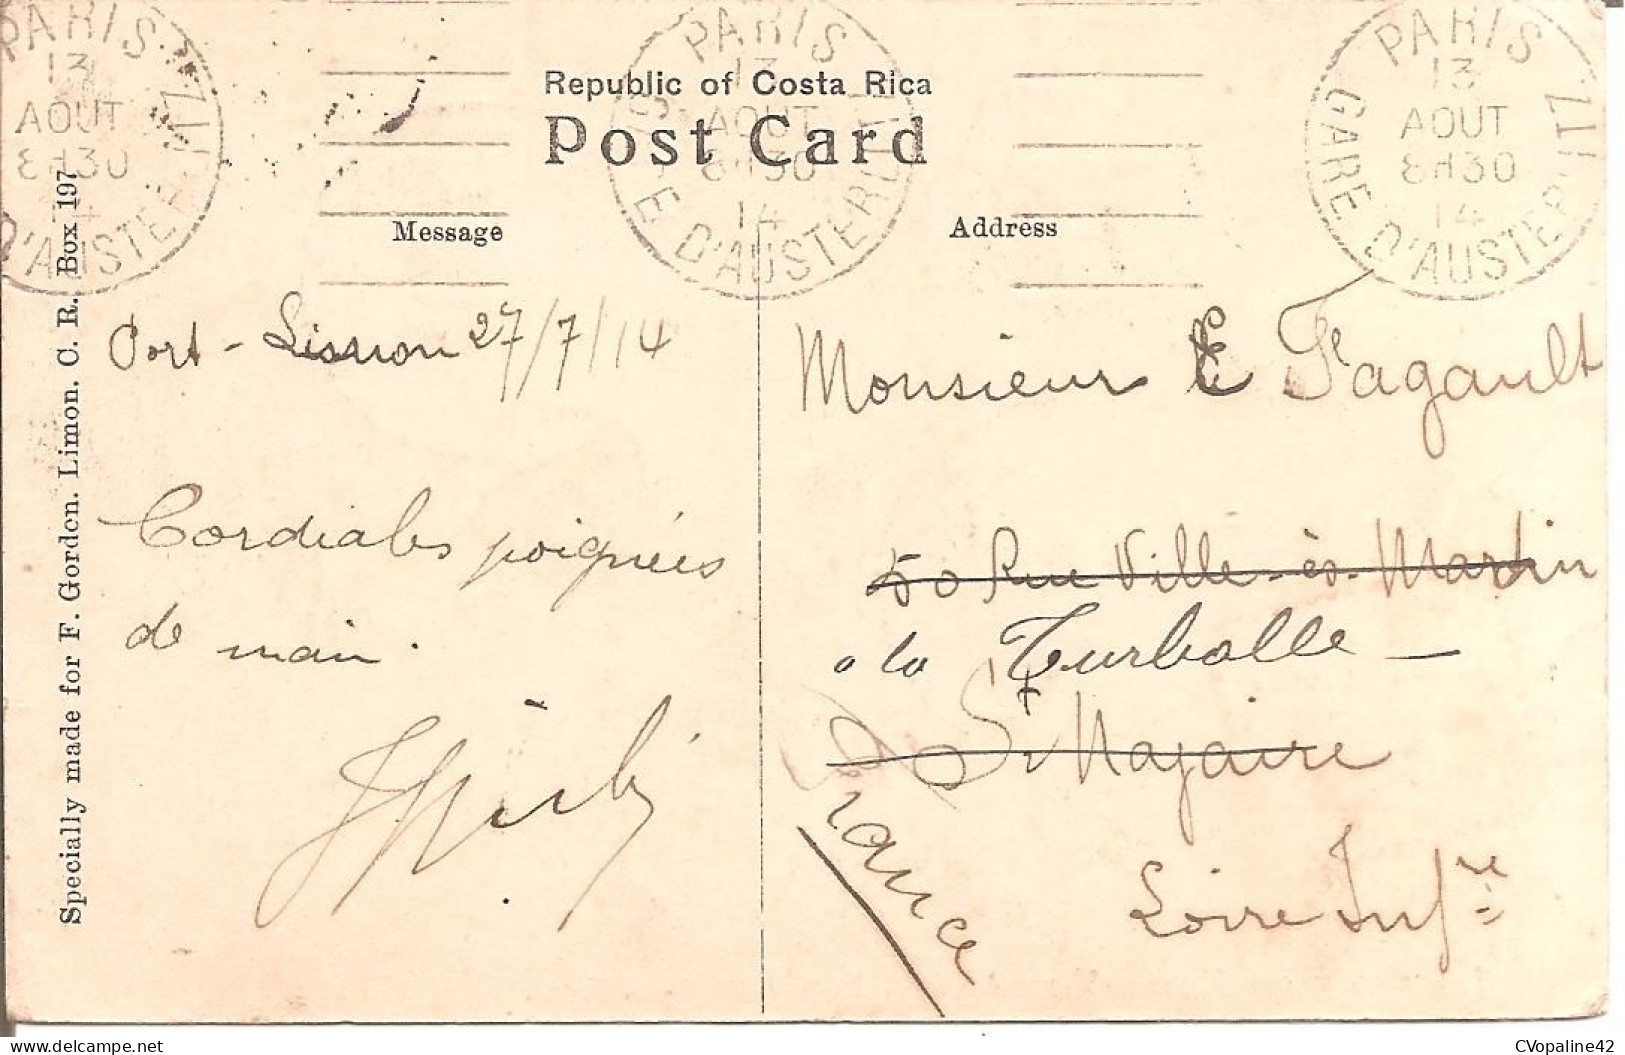 PARIS
13
AOUT
8H30
14
D'AUSTERLITZ
PARIS
13
AOUT
8H30
14
GARE D'AUSTERLITZ
PARIS
13
AOUT
8H30
14
GARE D'AUSTERLITZ
Republic of Costa Rica
Post Card
Message
Address
Specially made for F. Gordon. Limon. C. R. Box 197
Port - 27/7/14
Cordiales poignées
de main.
Monsieur E Fagault
50 Rue Ville-ès-Martin
a la Turballe —
St Nazaire
Loire Infre
France
CVopaline42